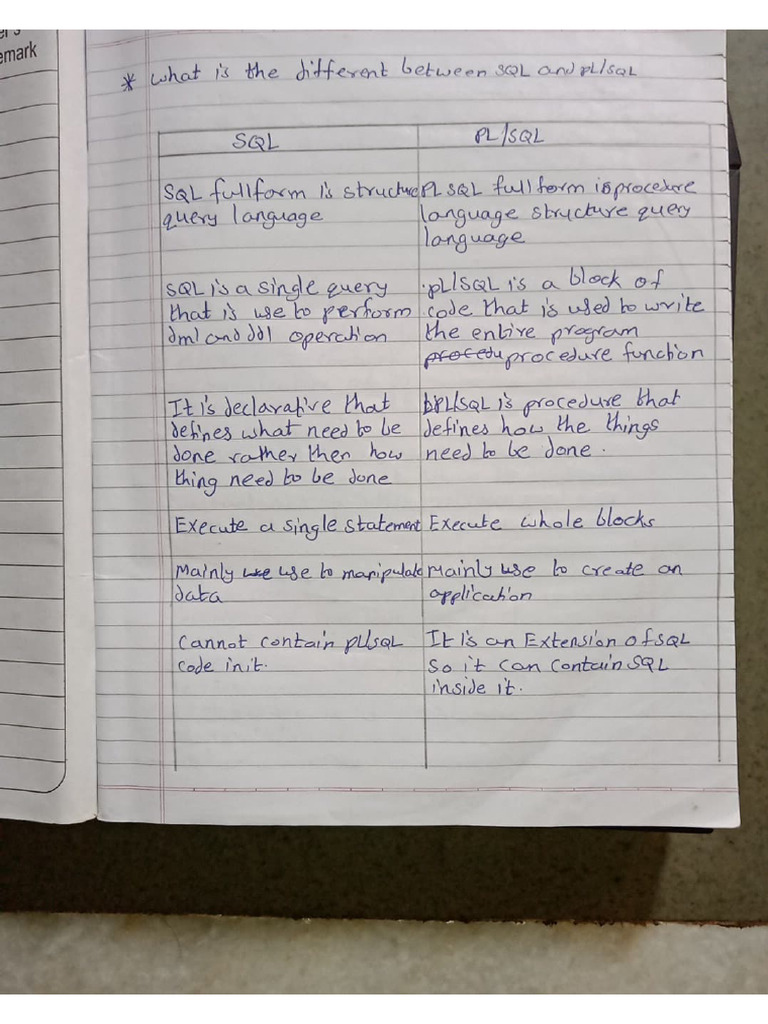 emark
* What is the different between SQL and PL/SQL
SQL
PL/SQL
SQL fullform is structure
query language
PL SQL full form is procedure
language structure query
language
SQL is a single query
that is use to perform
dml and ddl operation
PL/SQL is a block of
code that is used to write
the entire program
procedu procedure function
It is declarative that
defines what need to be
done rather then how
thing need to be done
PL/SQL is procedure that
defines how the things
need to be done.
Execute a single statement
Execute whole blocks
Mainly use use to manipulate
data
Mainly use to create an
application
Cannot contain PL/SQL
code in it.
It is an Extension of SQL
so it can contain SQL
inside it.